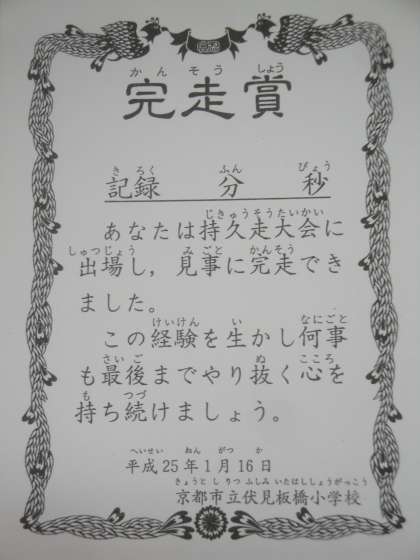 かんそうしょう
完走賞
きろく ふん びょう
記録 分 秒
じきゅうそうたいかい
あなたは持久走大会に
しゅつじょう みごと かんそう
出場し，見事に完走でき
ました。
けいけん い なにごと
この経験を生かし何事
さいご ぬ こころ
も最後までやり抜く心を
も つづ
持ち続けましょう。
へいせい ねん がつ か
平成25年1月16日
きょうとしりつふしみいたばししょうがっこう
京都市立伏見板橋小学校